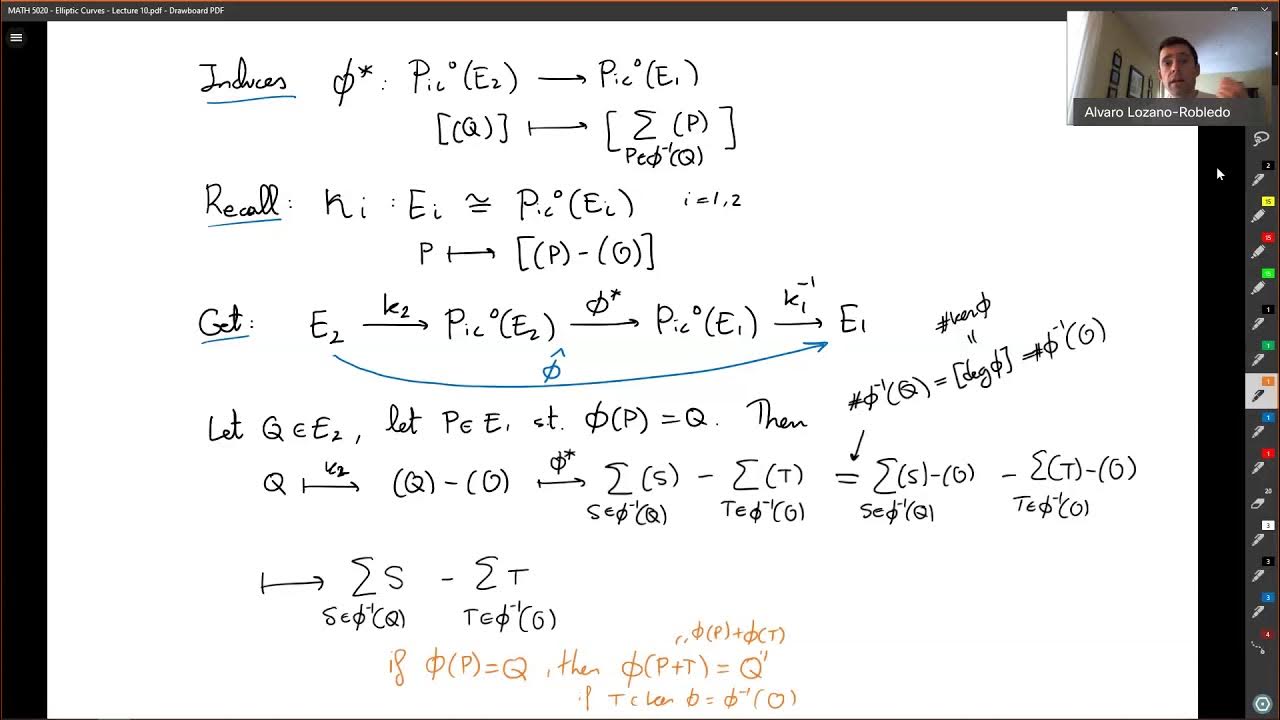 MATH 5020 - Elliptic Curves - Lecture 10.pdf - Drawboard PDF
Alvaro Lozano-Robledo
Induces ϕ* : Pic⁰(E₂) ⟶ Pic⁰(E₁)
[(Q)] ⟼ [ ∑ (P) ]
P∈ϕ⁻¹(Q)
Recall : κᵢ : Eᵢ ≅ Pic⁰(Eᵢ) i = 1, 2
P ⟼ [(P) - (O)]
Get : E₂ —κ₂→ Pic⁰(E₂) —ϕ*→ Pic⁰(E₁) —κ₁⁻¹→ E₁
ϕ̂
#ker ϕ
"
#ϕ⁻¹(Q) = [deg ϕ] = #ϕ⁻¹(O)
Let Q ∈ E₂, let P ∈ E₁ st. ϕ(P) = Q. Then
Q ⟼κ₂ (Q) - (O) ⟼ϕ* ∑ (S) - ∑ (T) = ∑ (S) - (O) - ∑ (T) - (O)
S∈ϕ⁻¹(Q) T∈ϕ⁻¹(O) S∈ϕ⁻¹(Q) T∈ϕ⁻¹(O)
⟼ ∑ S - ∑ T
S∈ϕ⁻¹(Q) T∈ϕ⁻¹(O)
ϕ(P)+ϕ(T)
if ϕ(P) = Q, then ϕ(P+T) = Q
if T ∈ ker ϕ = ϕ⁻¹(O)